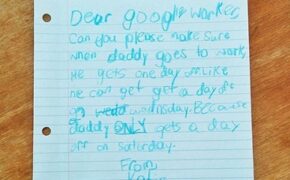 Dear google worker,
Can you please make sure
when daddy goes to work,
He gets one day off. Like
he can get get a day off
on wedd wednsday. Because
daddy ONLY gets a day
off on Saturday.
From,